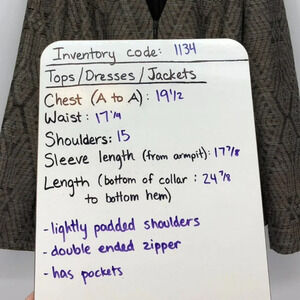 Inventory code: 1134
Tops/Dresses/Jackets
Chest (A to A): 19 1/2
Waist: 17 1/4
Shoulders: 15
Sleeve length (from armpit): 17 7/8
Length (bottom of collar : 24 7/8
to bottom hem)
-lightly padded shoulders
-double ended zipper
-has pockets